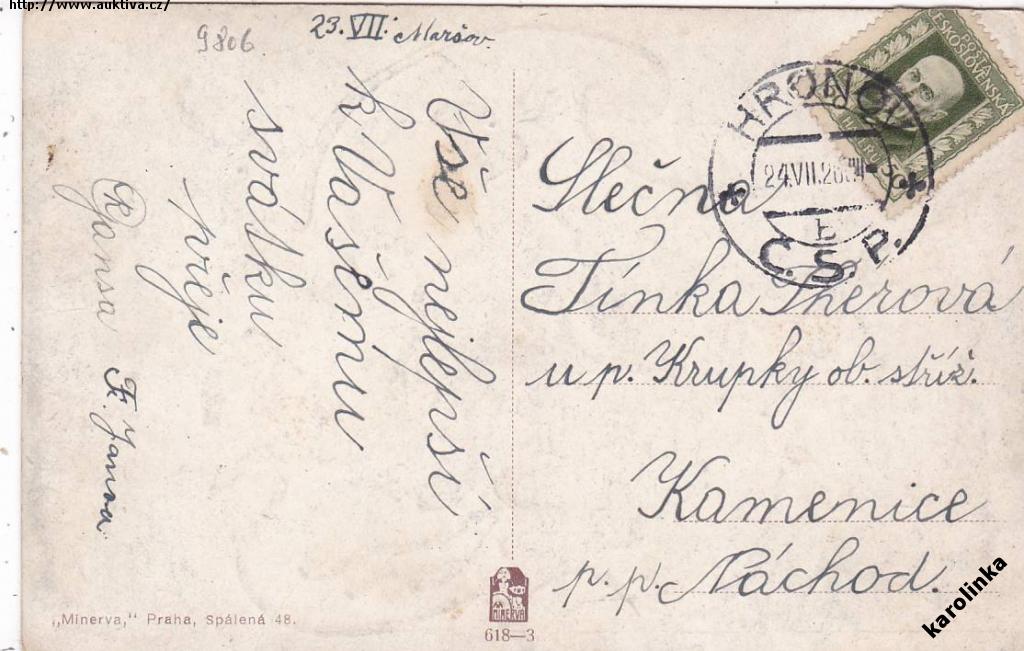 http://www.auktiva.cz/
9806
23. VII. Maršov.
Vše nejlepší
k Vašemu
svátku
přeje
Fr. Jansa
HRONOV
24.VII.26
b
Č.S.P.
POŠTA
ČESKOSLOVENSKÁ
Slečna
Tinka Therová
u p. Krupky ob. stříž.
Kamenice
p. p. Náchod.
„Minerva," Praha, Spálená 48.
MINERVA
618—3
karolinka